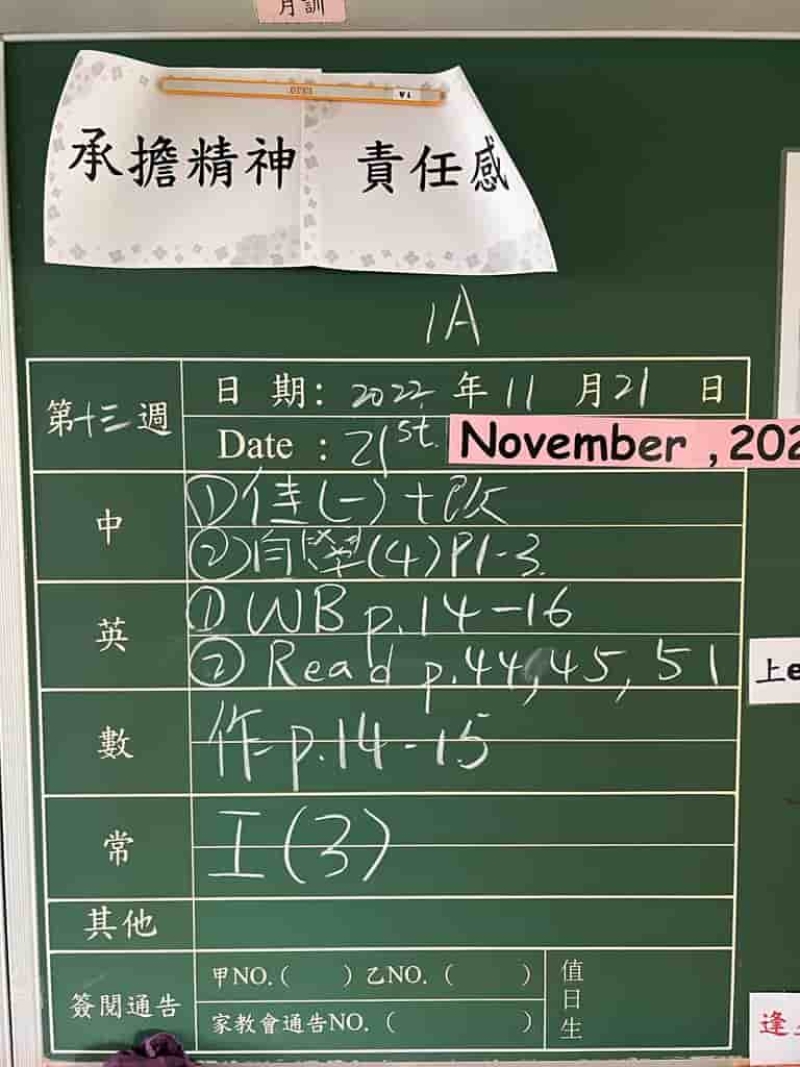 月訓
承擔精神 責任感
1A
第十三週
日 期: 2022 年 11 月 21 日
Date : 21st. November , 202
中
①佳(一)+改
②自學(4)P1-3
英
① WB p.14-16
② Read p.44,45, 51
上e
數
作 p.14-15
常
工(3)
其他
簽閱通告
甲NO.( ) 乙NO. ( )
家教會通告NO. ( )
值日生
逢